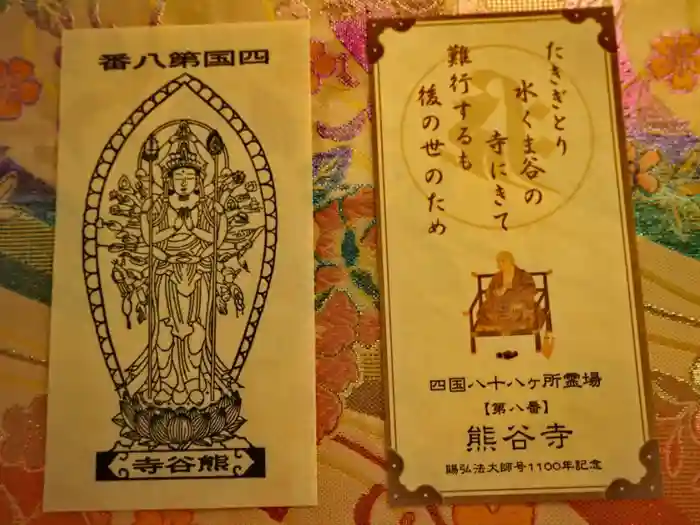 番八第国四
寺谷熊
たきぎとり
水くま谷の
寺にきて
難行するも
後の世のため
四国八十八ヶ所霊場
【第八番】
熊谷寺
賜弘法大師号1100年記念